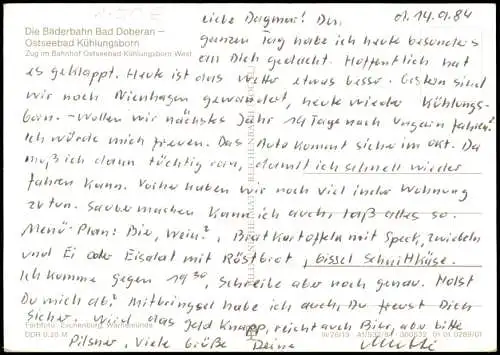 Die Bäderbahn Bad Doberan –
Ostseebad Kühlungsborn
Zug im Bahnhof Ostseebad Kühlungsborn West
d. 14.9.84
Liebe Dagmar! Den
ganzen Tag habe ich heute besonders
an Dich gedacht. Hoffentlich hat
es geklappt. Heute ist das Wetter etwas besser. Gestern sind
wir noch Nienhagen gewandert, heute wieder Kühlungs-
born. – Wollen wir nächstes Jahr 14 Tage nach Ungarn fahren?
Ich würde mich freuen. Das Auto kommt sicher im Okt. Da
muß ich dann tüchtig ran, damit ich schnell wieder
fahren kann. Vorher haben wir noch viel in der Wohnung
zu tun. Saubermachen kann ich auch, laß alles so.
Menü-Plan: Bier, Wein?, Bratkartoffeln mit Speck, Zwiebeln
und Ei oder Eisalat mit Röstbrot, bissel Schnittkäse.
Ich komme gegen 19³⁰, schreibe aber noch genau. Holst
Du mich ab? Mitbringsel habe ich auch, Du freust Dich
sicher. Wird das Geld knapp, reicht auch Bier, aber bitte
Pilsner. Viele Grüße Deine
Farbfoto: Eschenburg, Warnemünde
DDR 0,25 M